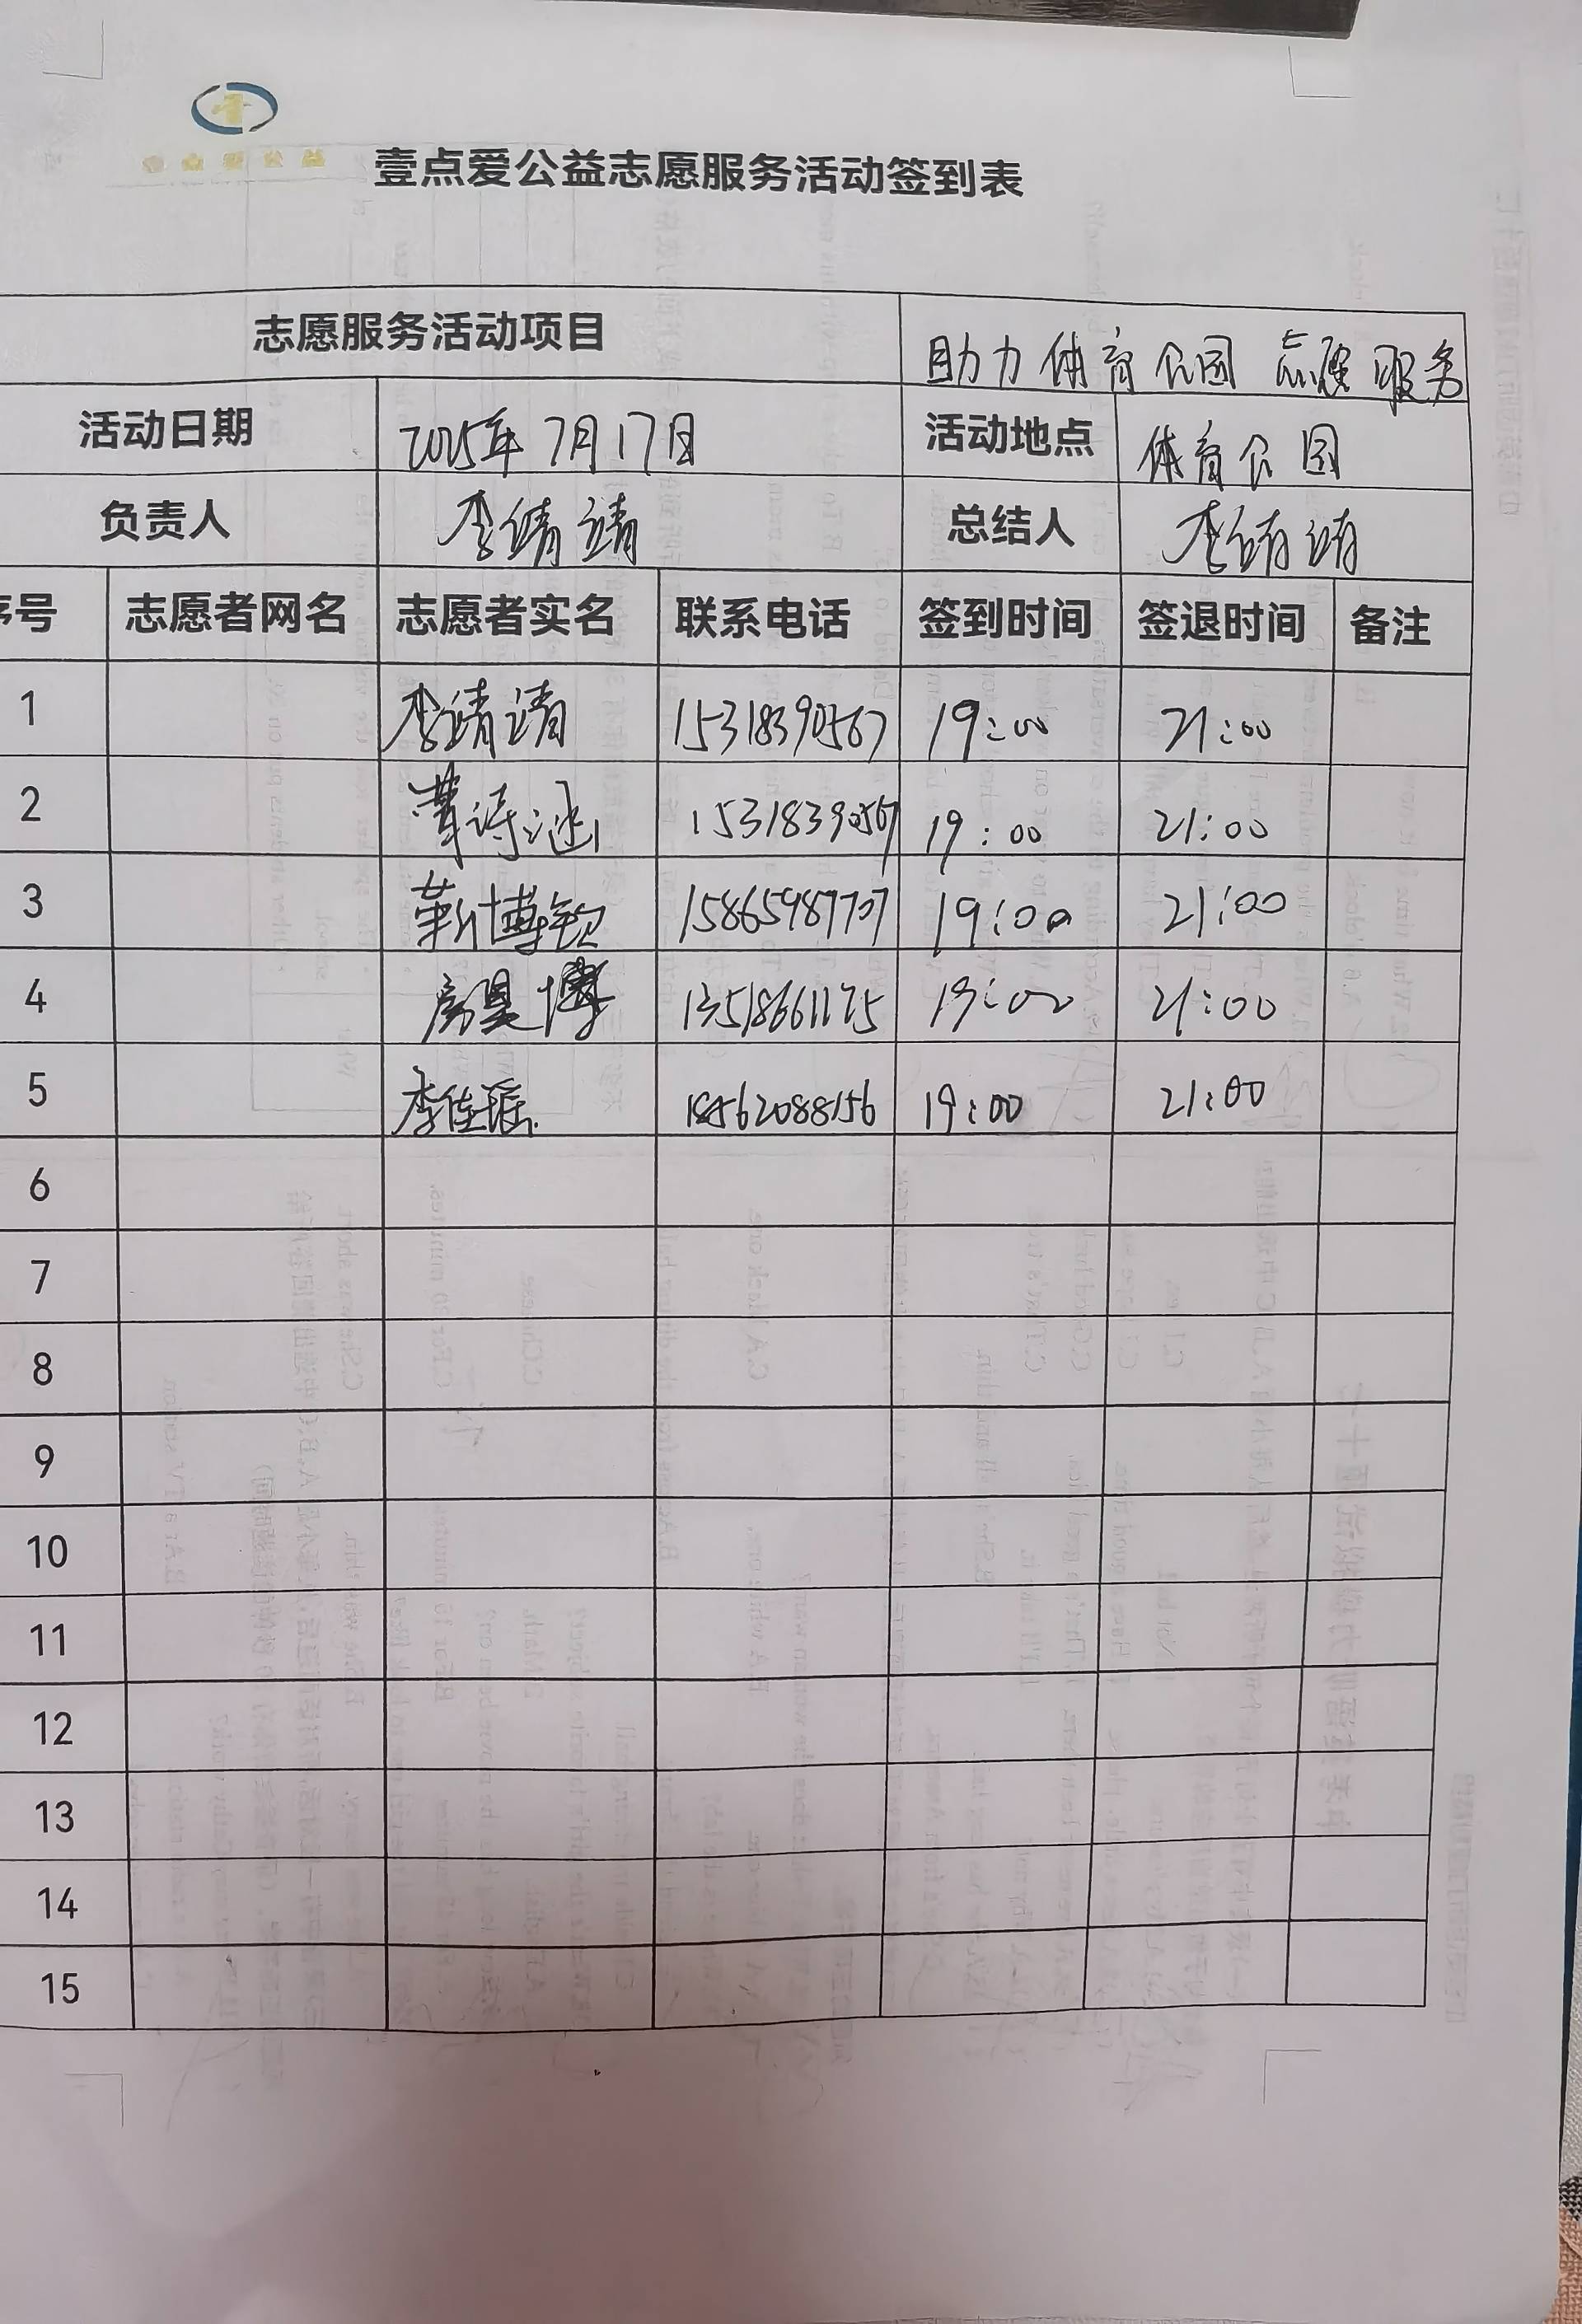 壹点爱公益志愿服务活动签到表
志愿服务活动项目 助力体育公园志愿服务
活动日期 2025年7月17日 活动地点 体育公园
负责人 李靖靖 总结人 李靖靖
序号 志愿者网名 志愿者实名 联系电话 签到时间 签退时间 备注
1 李靖靖 15318390567 19:00 21:00
2 诗涵 15318390567 19:00 21:00
3 靳博钦 15865987707 19:00 21:00
4 房昊博 13518661175 19:00 21:00
5 李佳瑶 18562088156 19:00 21:00
6
7
8
9
10
11
12
13
14
15